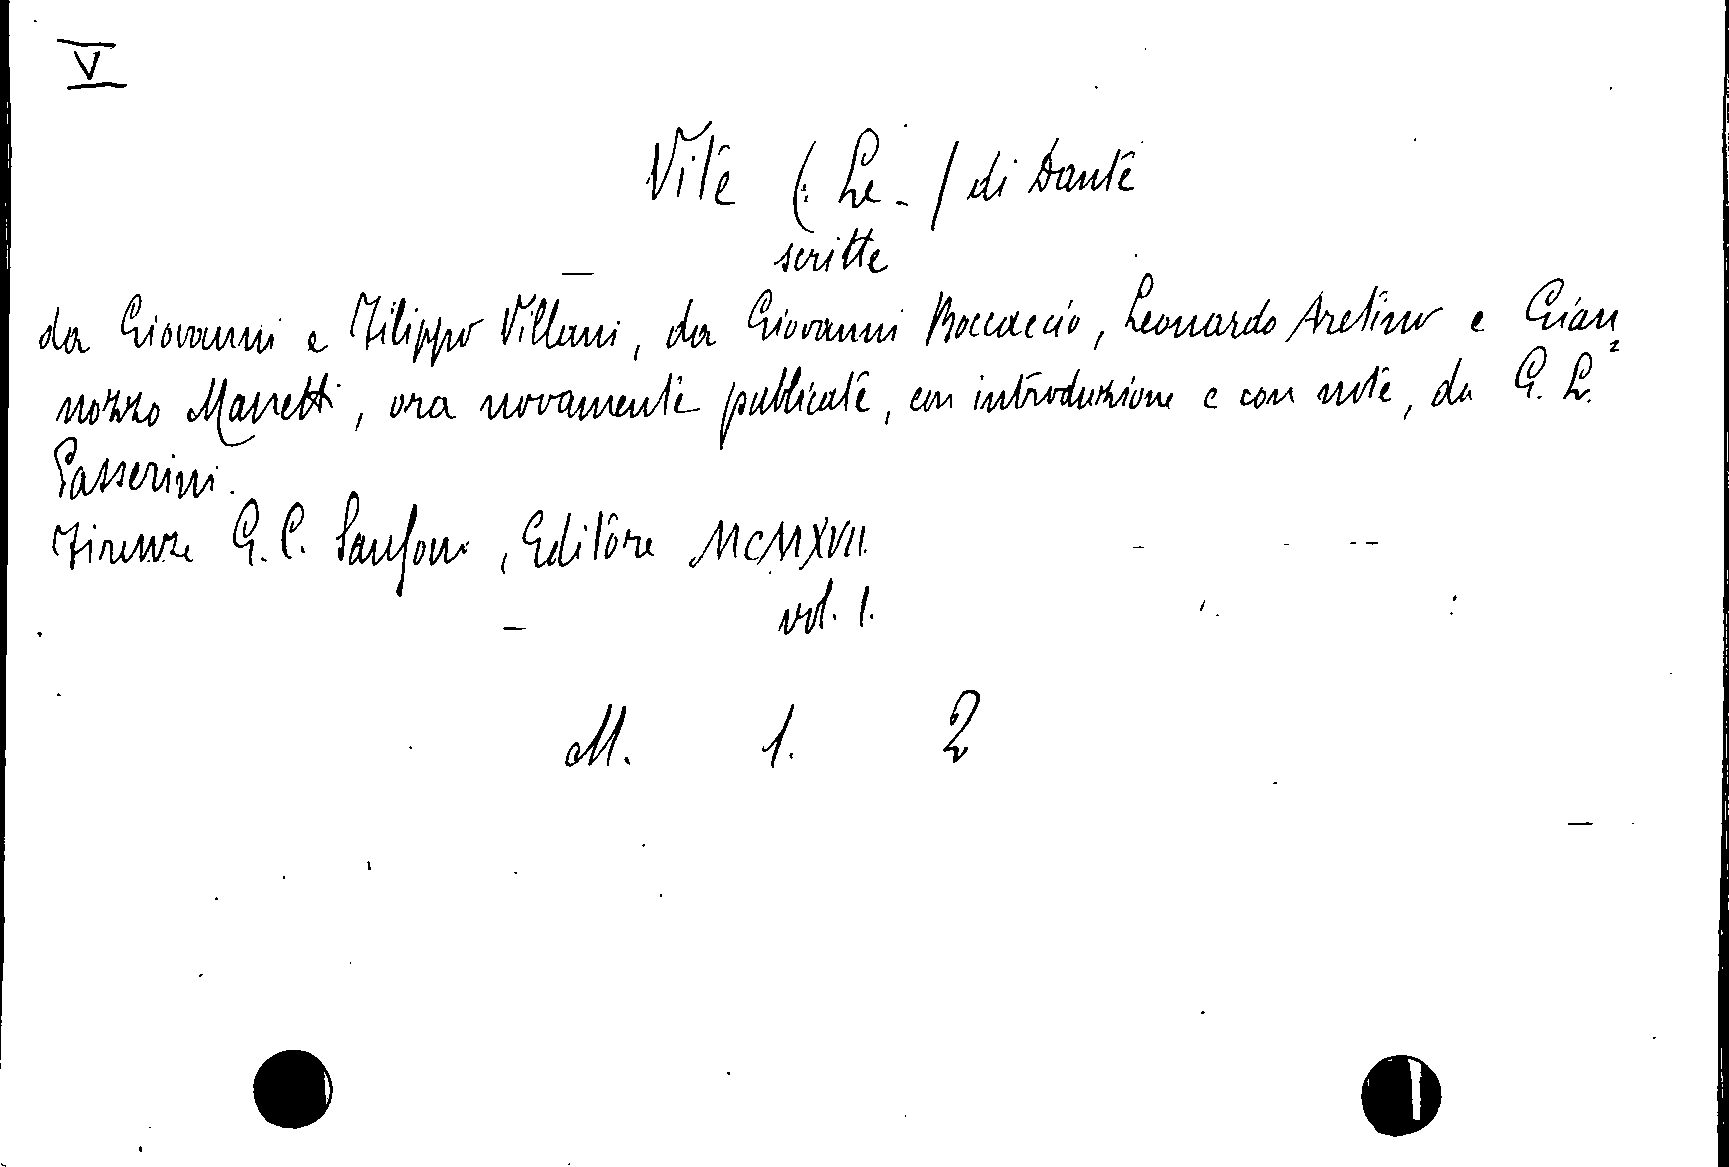 V
Vite (: Le - / di Dante
scritte
da Giovanni e Filippo Villani, da Giovanni Boccaccio, Leonardo Aretino e Gian
nozzo Manetti, ora novamente publicate, con introduzione e con note, da G. L.
Passerini.
Firenze G. C. Sansoni, Editore MCMXVII.
vol. 1.
M. 1. 2